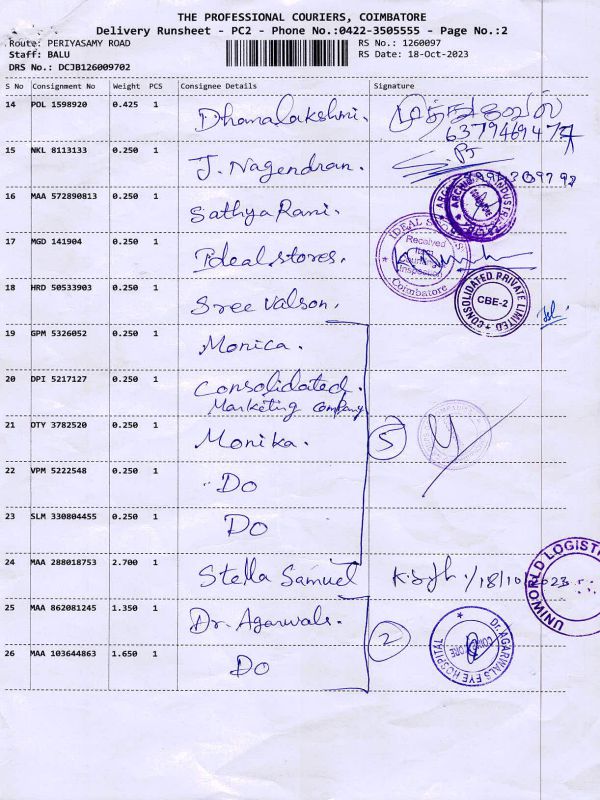 THE PROFESSIONAL COURIERS, COIMBATORE
Delivery Runsheet - PC2 - Phone No.:0422-3505555 - Page No.:2
Route: PERIYASAMY ROAD RS No.: 1260097
Staff: BALU RS Date: 18-Oct-2023
DRS No.: DCJB126009702
S No Consignment No Weight PCS Consignee Details Signature
14 POL 1598920 0.425 1 Dhanalakshmi.
15 NKL 8113133 0.250 1 J. Nagendran.
16 MAA 572890813 0.250 1 Sathya Rani.
17 MGD 141904 0.250 1 Ideal stores.
IDEAL STORES
Received
Inspection
Coimbatore
18 HRD 50533903 0.250 1 Sree Valson.
CONSOLIDATED PRIVATE LIMITED
CBE-2
19 GPM 5326052 0.250 1 Monica.
20 DPI 5217127 0.250 1 Consolidated.
Marketing company
21 OTY 3782520 0.250 1 Monika. 5
22 VPM 5222548 0.250 1 Do
23 SLM 330804455 0.250 1 Do
24 MAA 288018753 2.700 1 Stella Samuel
UNIWORLD LOGISTI
25 MAA 862081245 1.350 1 Dr. Agarwals. 2
Dr. AGARWALS EYE HOSPITAL
26 MAA 103644863 1.650 1 Do